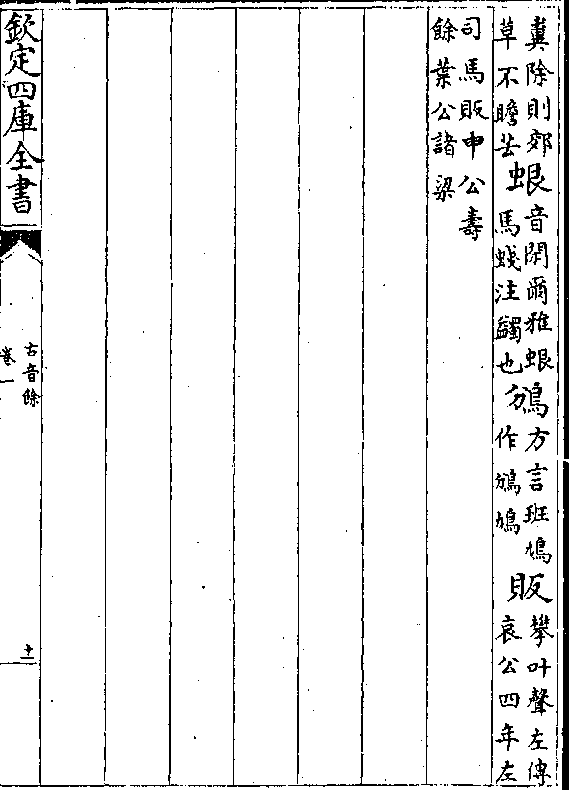 糞除則郊
草不瞻芸
蛝
音閑爾雅蛝
馬䗃注蠲也
鳻
方言班鳩
作鳻鳩
販
攀叶聲左傳
哀公四年左
司馬販申公壽
餘葉公諸梁
欽定四庫全書
古音餘
卷一
十一